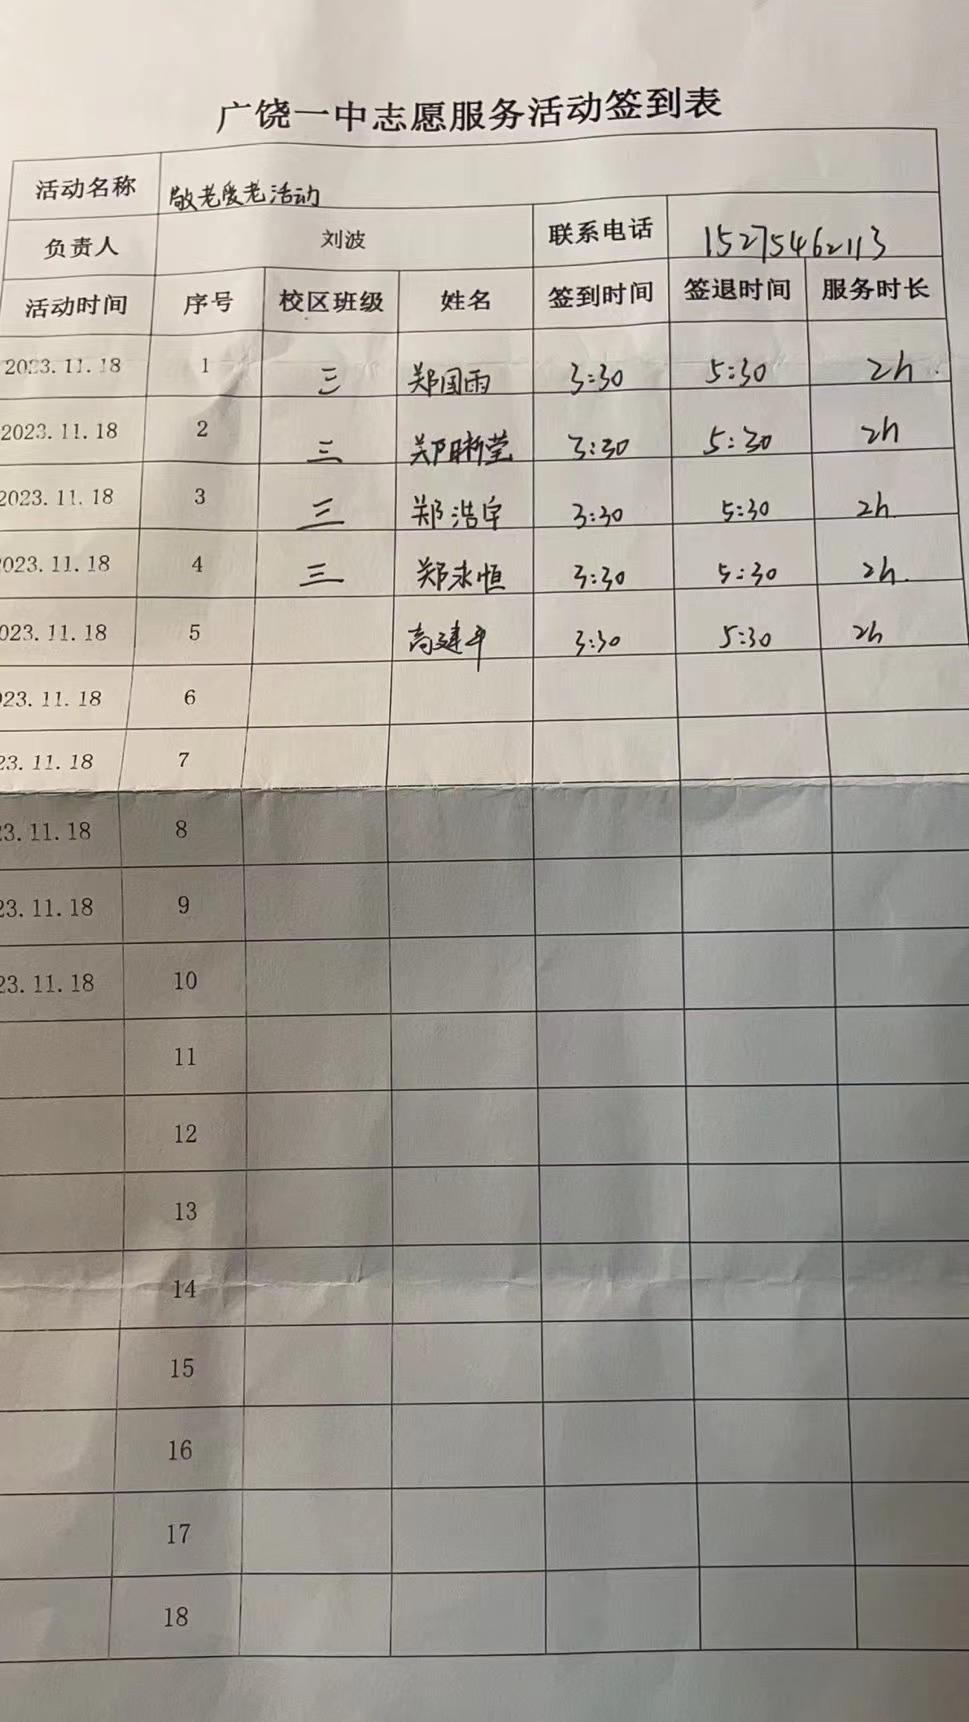 广饶一中志愿服务活动签到表
活动名称 敬老爱老活动
负责人 刘波 联系电话 15275462113
活动时间 序号 校区班级 姓名 签到时间 签退时间 服务时长
2023.11.18 1 三 郑国雨 3:30 5:30 2h.
2023.11.18 2 三 郑晰莹 3:30 5:30 2h
2023.11.18 3 三 郑浩宇 3:30 5:30 2h.
023.11.18 4 三 郑永恒 3:30 5:30 2h.
023.11.18 5 高建平 3:30 5:30 2h
023.11.18 6
23.11.18 7
23.11.18 8
23.11.18 9
23.11.18 10
11
12
13
14
15
16
17
18